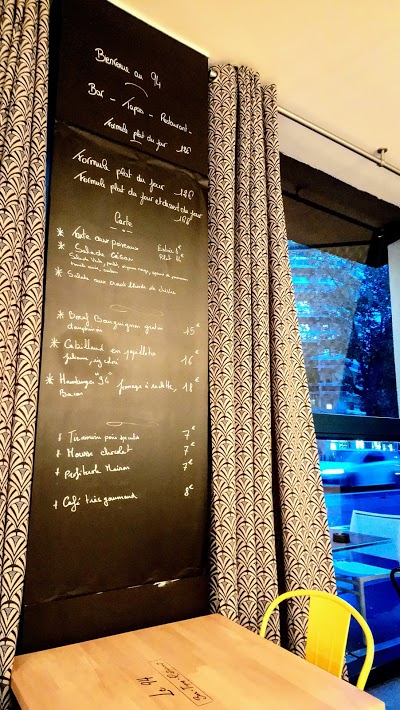 Bienvenue au 94
Bar - Tapas - Restaurant -
Formule plat du jour
Formule plat du jour 12€
Formule plat du jour et dessert du jour
16€
Carte
* Tarte aux poireaux
* Salade César
* Salade aux
* Boeuf Bourguignon gratin
dauphinois 15€
* Cabillaud en papillote
16€
* Hamburger "94" fromage à raclette, 18€
Bacon
+ Tiramisu poire spéculos 7€
+ Mousse chocolat 7€
+ Profiterole Maison 7€
+ Café très gourmand 8€
Le 94